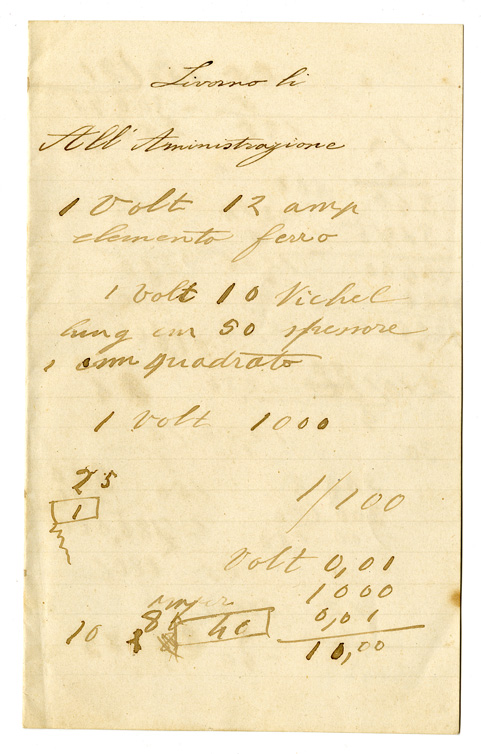 Livorno li
All' Aministrazione
1 Volt 12 amp
elemento ferro
1 Volt 10 Nichel
lung cm 50 spessore
1 mm quadrato
1 Volt 1000
25
1/100
1
Volt 0,01
1000
amper
0,01
10 80 40
10,00